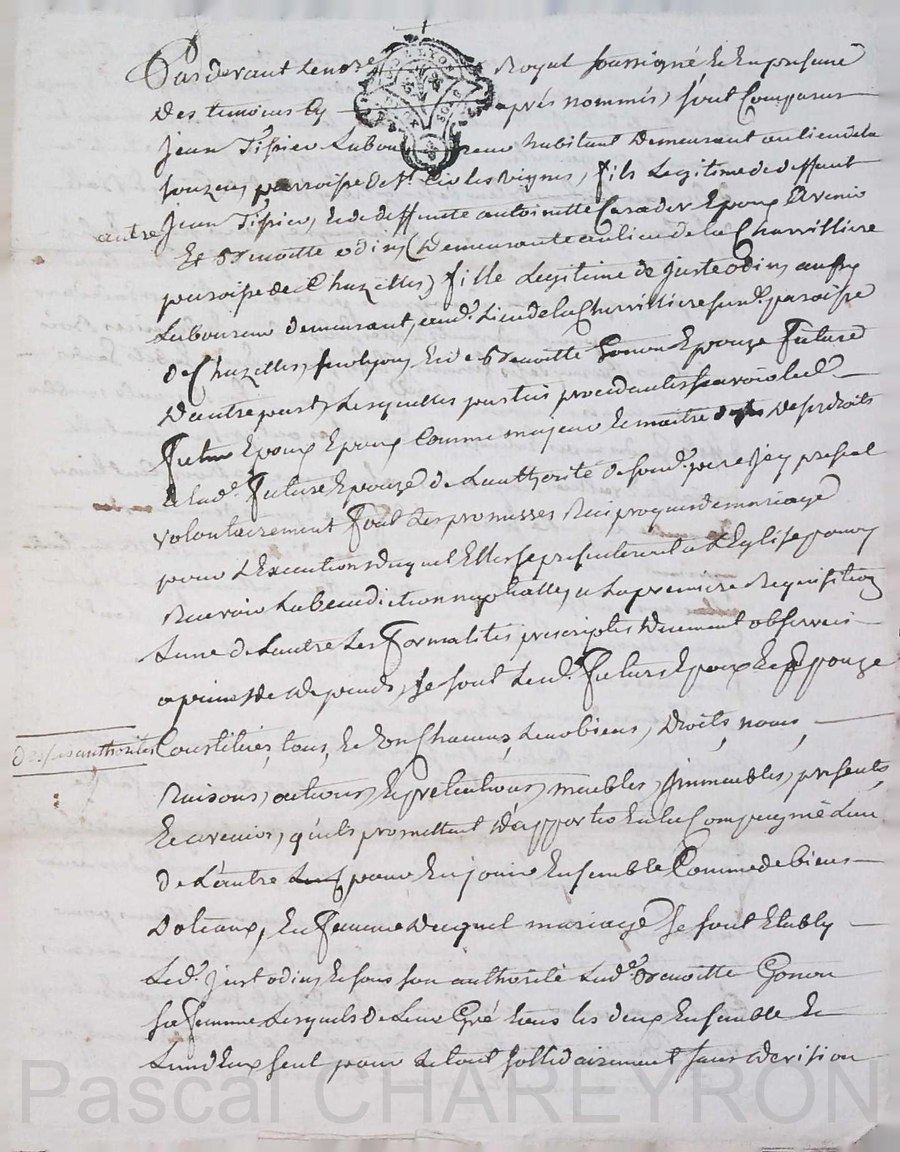 Pardevant Lenore Royal soussigné Et En presance
Des temoins cy aprés nommés, sont Comparus
Jean Tissier Labou reur habitant Demeurant au lieu de la
parroisse de st les vignes, fils Legitime de deffunt
autre Jean Tissier, Et de deffunte antoinette Epoux Avenir
Et Benoitte odin, (Demeurante au lieu de la Charvilliere
paroisse de Chazelles) fille Legitime de Juste odin, aussy
Laboureur demeurant, aud. Lieu de la Charvilliere susd. paroisse
de Chazelles, sur lyon, Et de Benoitte Gonon Epouze Future
D'autre part, Lesquelles parties procedantes savoir led.
Futur Epoux Epoux Comme majeur Et maitre de ses Droits
Et lad. Future Epouze de L'authorité de sond. pere icy present
volontairement font Les promesses Reciproques de mariage
pour L'Execution duquel Elles se presenteront a L'Eglise pour y
Recevoir La benediction nuptialle, a La premiere Requisition
Lune de Lautre Les Formalités prescriptes duement observées
a peine de depends, se sont Lesd. Futurs Epoux Et Epouze
de ses authorités Constitués, tous, Et Un Chacuns, Leurs biens, Droits, noms,
Raisons, actions, Et pretentions, meubles, Jmmeubles, presents,
Et avenirs, qu'ils promettent D'apporter En la Compagnie L'un
De L'autre pour En jouir Ensemble Comme de biens
Dotaux, En Faveur Duquel mariage se sont Etably
Led. Just odin, Et sous son authorité Lad. Benoitte Gonon
sa femme Lesquels de Leur Gré tous les deux Ensemble Et
L'un d'Eux seul pour Le tout sollidairement sans division
Pascal CHAREYRON